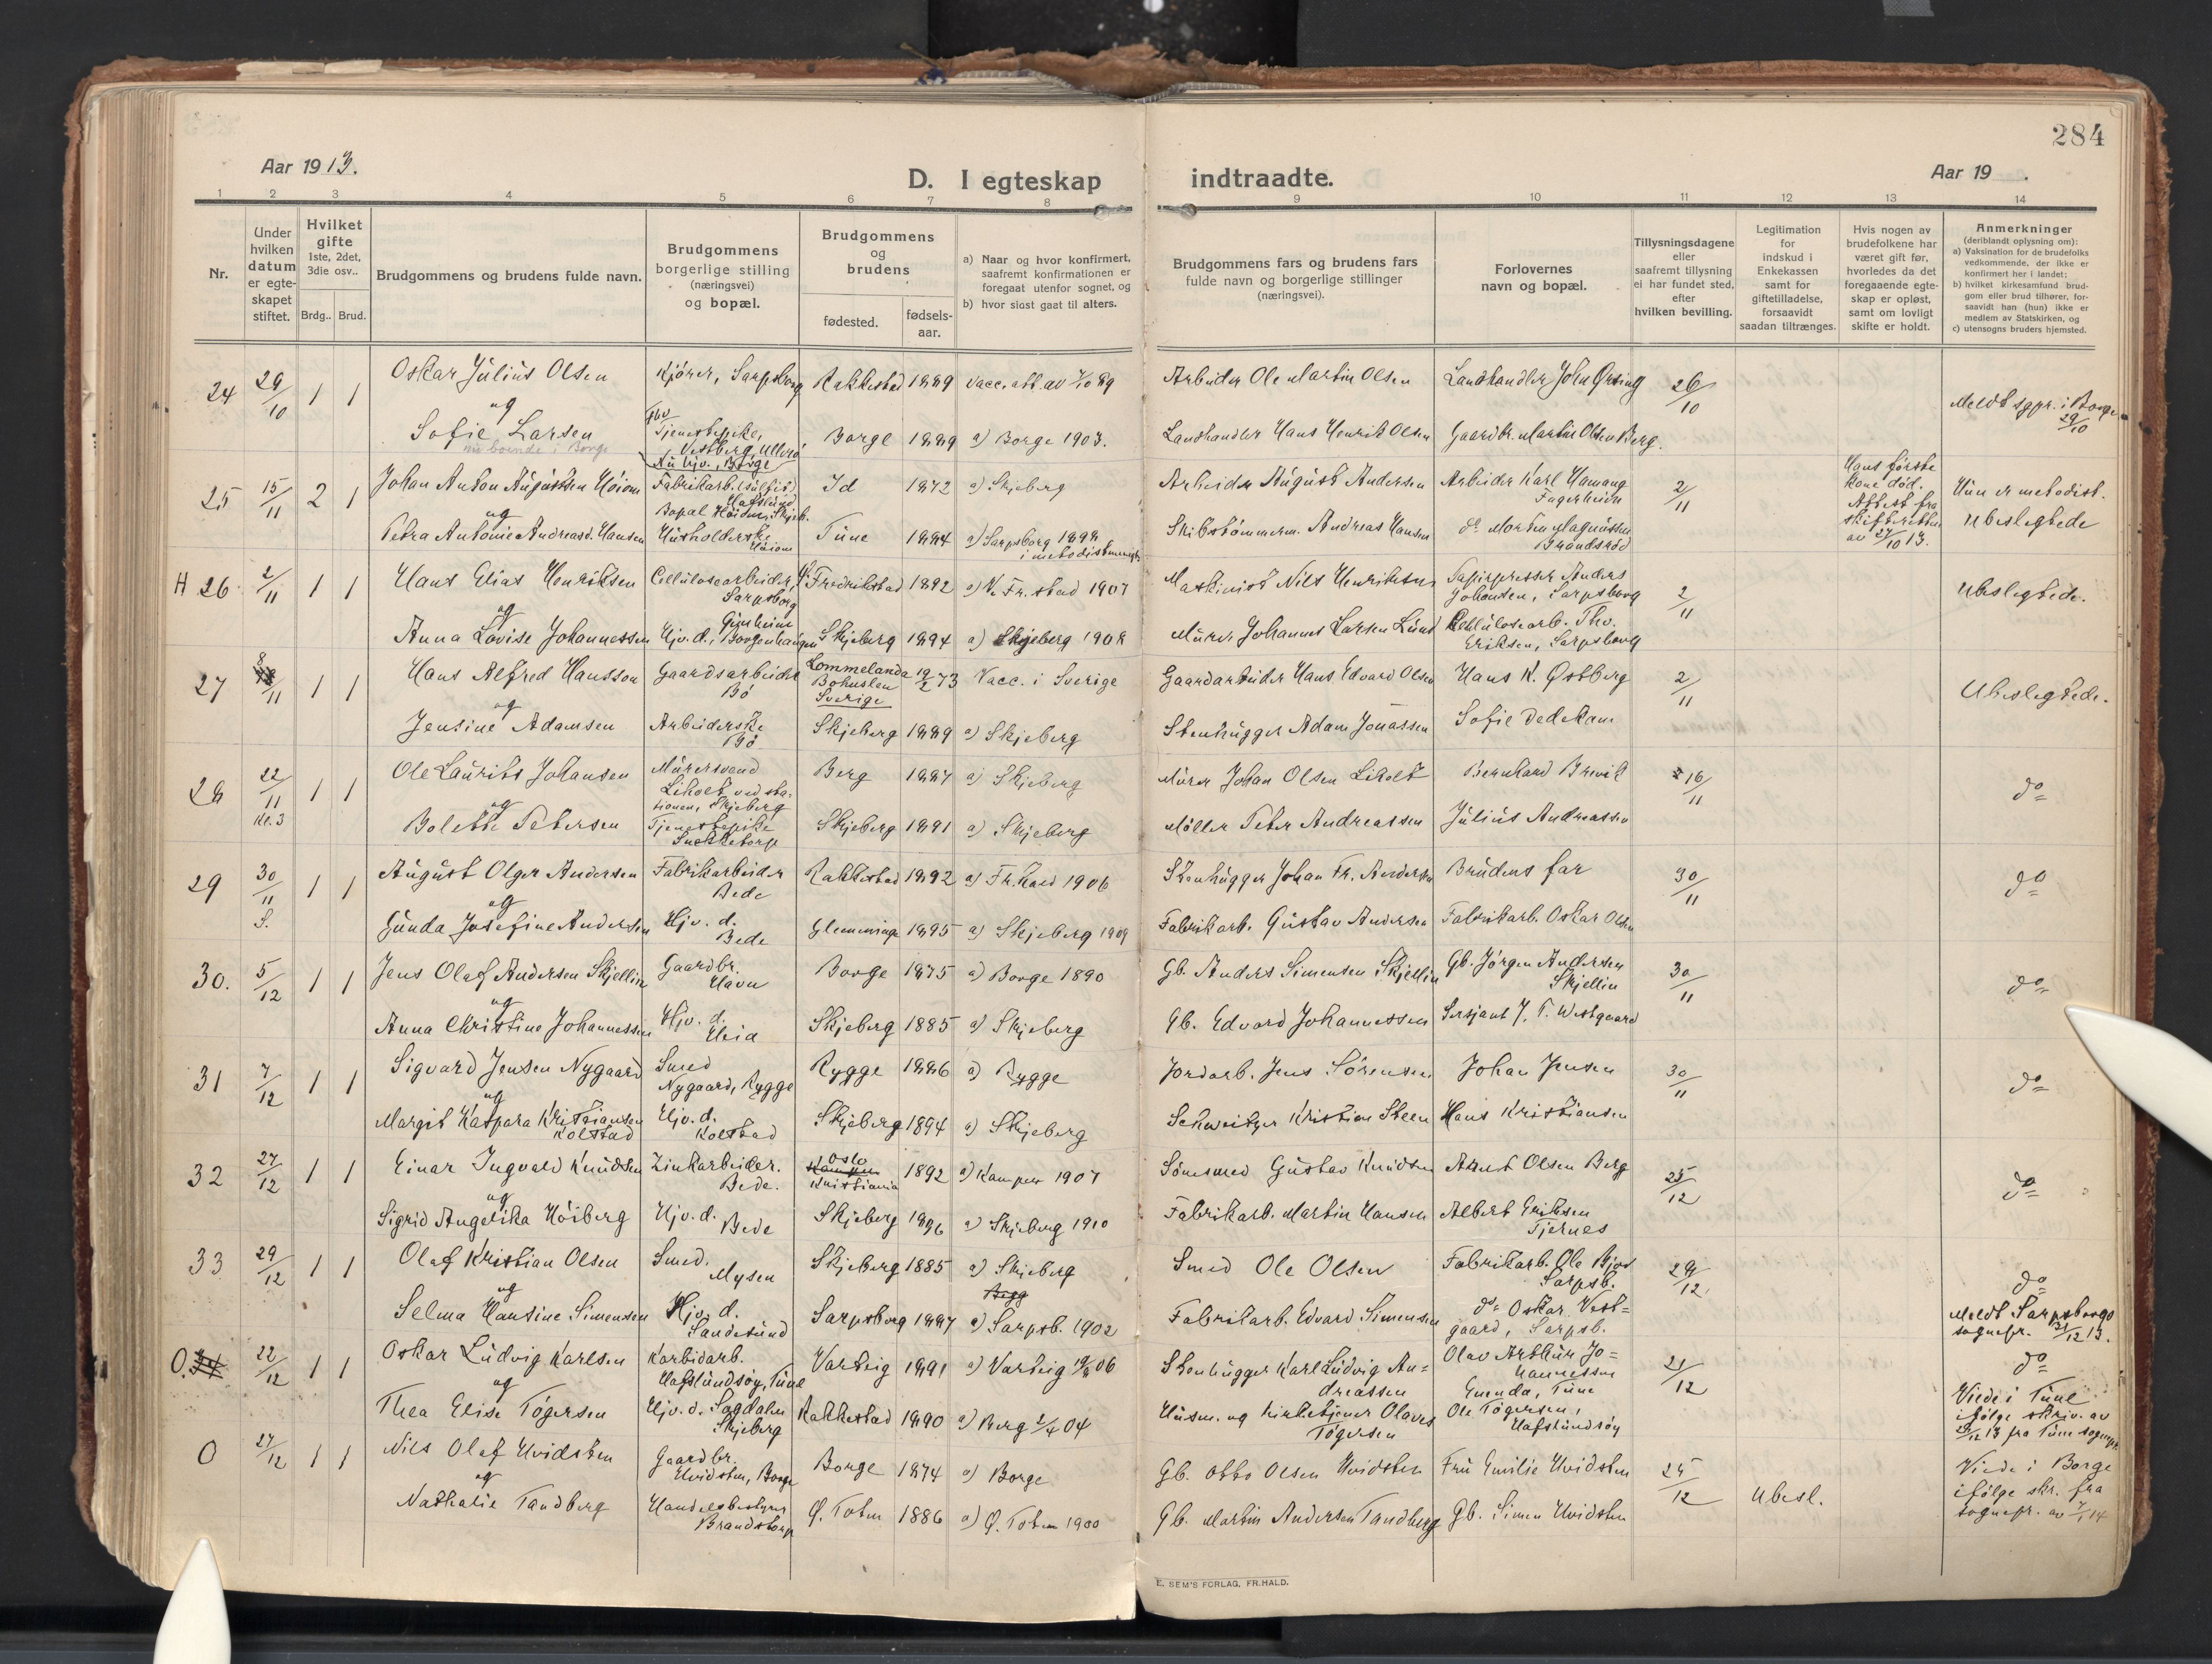 284
Aar 1913.
D. I egteskap indtraadte.
Aar 19 .
1 2 3 4 5 6 7 8 9 10 11 12 13 14
Nr.
Under hvilken datum er egteskapet stiftet.
Hvilket gifte 1ste, 2det, 3die osv..
Brdg.. Brud.
Brudgommens og brudens fulde navn.
Brudgommens borgerlige stilling (næringsvei) og bopæl.
Brudgommens og brudens
fødested. fødselsaar.
a) Naar og hvor konfirmert, saafremt konfirmationen er foregaat utenfor sognet, og
b) hvor sidst gaat til alters.
Brudgommens fars og brudens fars fulde navn og borgerlige stillinger (næringsvei).
Forlovernes navn og bopæl.
Tillysningsdagene eller saafremt tillysning ei har fundet sted, efter hvilken bevilling.
Legitimation for indskud i Enkekassen samt for giftetilladelse, forsaavidt saadan tiltrænges.
Hvis nogen av brudefolkene har været gift før, hvorledes da det foregaaende egteskap er opløst, samt om lovligt skifte er holdt.
Anmerkninger (deriblandt oplysning om):
a) Vaksination for de brudefolks vedkommende, der ikke er konfirmert her i landet;
b) hvilket kirkesamfund brudgom eller brud tilhører, forsaavidt han (hun) ikke er medlem av Statskirken, og
c) utensogns bruders hjemsted.
24 29/10 1 1 Oskar Julius Olsen Kjører, Sarpsborg Rakkestad 1889 Vacc. att. av 7/10 89 Arbeider Ole Martin Olsen Landhandler John Ørsing 26/10
og
Sofie Larsen Tjenestepike, Borge 1889 a) Borge 1903. Landhandler Hans Henrik Olsen Gaardbr. Martin Olsen Berg. Meldt sgpr. i Borge 29/10
nu boende i Borge
Nu hjv., Borge
25 15/11 2 1 Johan Anton Augustsen Höiom Fabrikarb. (sulfit) Hafslund Id 1872 a) Skjeberg Arbeider August Andersen Arbeider Karl Hamang Fagerheim 2/11 Hans første kone død. Attest fra skifteretten av 27/10 13. Hun er metodist.
Bopæl Höiom, Skjeb.
og
Petra Antonie Andreasd. Hansen Husholderske Höiom Tune 1884 a) Sarpsborg 1898 i metodistmenigh. Skibstömmerm. Andreas Hansen do Morten Magnussen Brandsröd Ubeslegtede
H 26 2/11 1 1 Hans Elias Henriksen Cellulosearbeider, Sarpsborg Fredrikstad 1892 a) V. Fr.stad 1907 Maskinist Nils Henriksen Papirpresser Anders Johansen, Sarpsborg 2/11 Ubeslegtede.
og
Anna Lovise Johannessen Hjv. d., Borgenhaugen Skjeberg 1894 a) Skjeberg 1908 Murer Johannes Larsen Lund Cellulosearb. Thv. Eriksen, Sarpsborg
27 8/11 1 1 Hans Alfred Hansson Gaardsarbeider Bö Lommelanda Bohuslen Sverige 19/2 73 Vacc. i Sverige Gaardarbeider Hans Edvard Olsen Hans K. Østberg 2/11 Ubeslegtede.
og
Jensine Adamsen Arbeiderske Bö Skjeberg 1889 a) Skjeberg Stenhugger Adam Jonassen Sofie Dedekam
28 22/11 Kl. 3 1 1 Ole Laurits Johansen Murersvend Liholt ved stationen, Skjeberg Berg 1887 a) Skjeberg Murer Johan Olsen Liholt Bernhard Brevik 16/11 do
og
Bolette Petersen Tjenestepike Skjeberg 1891 a) Skjeberg Møller Peter Andreassen Julius Andreassen
29 30/11 S. 1 1 August Olger Andersen Fabrikarbeider Bede Rakkestad 1892 a) Fr.hald 1906 Stenhugger Johan Fr. Andersen Brudens far 30/11 do
og
Gunda Josefine Andersen Hjv. d. Bede Glemminge 1895 a) Skjeberg 1909 Fabrikarb. Gustav Andersen Fabrikarb. Oskar Olsen
30. 5/12 1 1 Jens Olaf Andersen Skjellin Gaardbr. Havn Borge 1875 a) Borge 1890 Gb. Anders Simensen Skjellin Gb. Jørgen Andersen Skjellin 30/11 do
og
Anna Christine Johannessen Hjv. d. Heia Skjeberg 1885 a) Skjeberg Gb. Edvard Johannessen Sersjant J. T. Westgaard
31 7/12 1 1 Sigvard Jensen Nygaard Smed Nygaard, Rygge Rygge 1886 a) Rygge Jordarb. Jens Sörensen Johan Jensen 30/11 do
og
Margit Kaspara Kristiansen Kolstad Hjv. d. Kolstad Skjeberg 1894 a) Skjeberg Schweitzer Kristian Steen Hans Kristiansen
32 27/12 1 1 Einar Ingvald Knudsen Zinkarbeider. Bede. Oslo Kampen Kristiania 1892 a) Kampen 1907 Gustav Knudsen Olsen Berg 25/12 do
og
Sigrid Angelika Höiberg Hjv. d. Bede Skjeberg 1896 a) Skjeberg 1910 Fabrikarb. Martin Hansen Albert Eriksen Tjernes
33 29/12 1 1 Olaf Kristian Olsen Smed. Mysen Skjeberg 1885 a) Skjeberg Smed Ole Olsen Fabrikarb. Ole Sarpsb. 29/12 do
og
Selma Hansine Simensen Hjv. d. Sandesund Sarpsborg 1887 a) Sarpsb. 1902 Fabrikarb. Edvard Simensen do Oskar Vestgaard, Sarpsb. Meldt Sarpsborgs sognepr. 31/12 13.
O. 34 22/12 1 1 Oskar Ludvig Karlsen Karbidarb. Hafslundsöy, Tune Varteig 1891 a) Varteig 06 Stenhugger Karl Ludvig Andreassen Olav Arthur Johannessen Tune 21/12 do
og
Thea Elise Tögersen Hjv. d. Sagdalen Skjeberg Rakkestad 1890 a) Berg 2/4 04 Husm. og kirketjener Olaves Tögersen Ole Tögersen, Hafslundsöy Viede i Tune ifölge skriv. av 13 fra Tune sognepr.
O 27/12 1 1 Nils Olaf Hvidsten Gaardbr. Hvidsten, Borge Borge 1874 a) Borge Gb. Otto Olsen Hvidsten Fru Emilie Hvidsten 25/12 Ubesl. Viede i Borge
og
Nathalie Tandberg Handelsbestyrer Brandstorp Ø. Toten 1886 a) Ø. Toten 1900 Gb. Martin Andersen Tandberg Gb. Simen Hvidsten ifölge skr. fra sognepr. av 7/1 14
E. SEM'S FORLAG, FR.HALD.